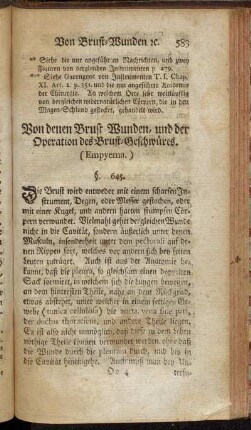 Von Brust-Wunden ꝛc. 583
** Siehe die nur angeführten Nachrichten, und zwey
Figuren von dergleichen Instrumenten p. 479.
*** Siehe Garengeot von Instrumenten T. I. Chap.
XI. Art. 2. p. 351. und die nur angeführte Academie
der Chirurgie. An welchem Orte sehr weitläuffig
von dergleichen widernatürlichen Cörpern, die in den
Magen-Schlund gestecket, gehandelt wird.
Von denen Brust-Wunden, und der
Operation des Brust-Geschwüres.
(Empyema.)
§. 645.
Die Brust wird entweder mit einem scharfen In-
strument, Degen, oder Messer gestochen, oder
mit einer Kugel, und andern harten stumpfen Cör-
pern verwundet. Vielmahl gehet dergleichen Wunde
nicht in die Cavität, sondern äusserlich unter denen
Musculn, insonderheit unter dem pectorali auf de-
nen Rippen fort, welches vor andern sich bey fetten
Leuten zuträget. Auch ist aus der Anatomie be-
kannt, daß die pleura, so gleichsam einen doppelten
Sack formiret, in welchem sich die Lungen bewegen,
an dem hintersten Theile, nahe an dem Rückgrad,
etwas abstehet, unter welcher in einem fettigen Ge-
webe (tunica cellulosa) die vena sine pari, der
ductus thoracicus, und andere Theile liegen.
Es ist also nicht unmöglich, daß einer von diesen
Theilen könne verwundet werden, ohne daß
die Wunde durch die pleuram durch, und bis in die
Cavität hineingehe. Auch muß man bey Un-
Oo 4 tersu-